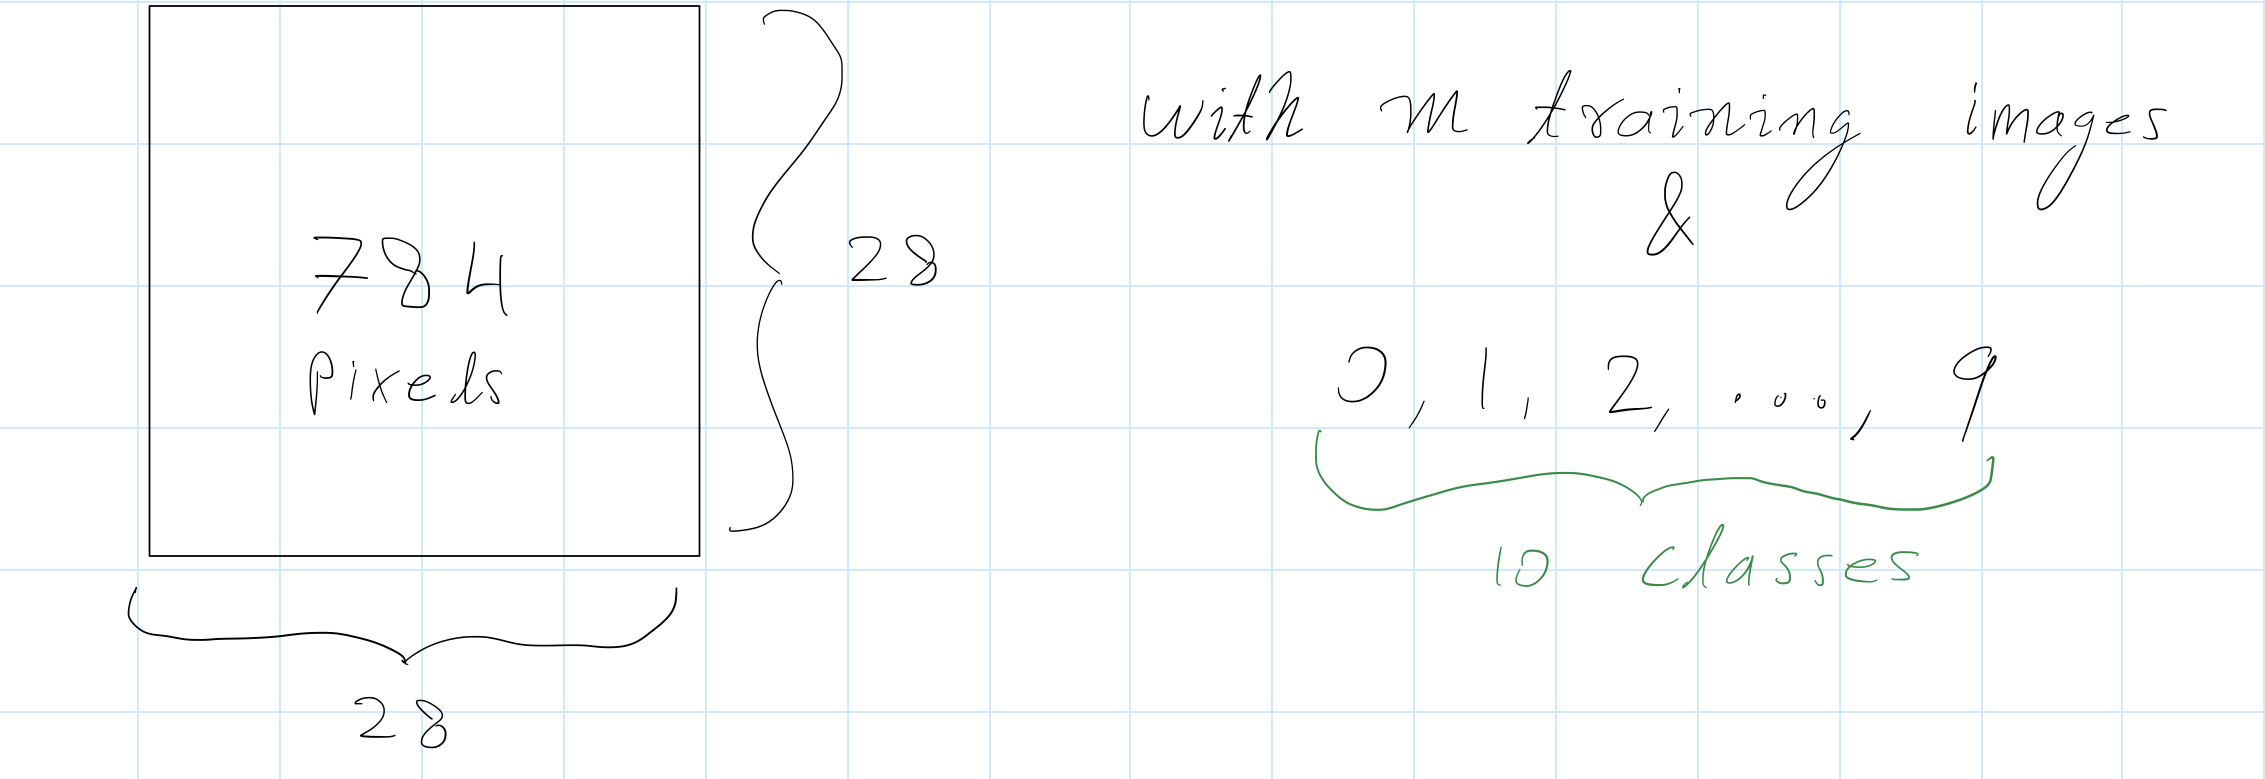 784
pixels
28
28
with m training images
&
0, 1, 2, ..., 9
10 classes